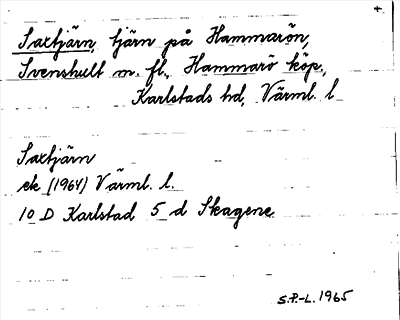 Saxtjärn, tjärn på Hammarön,
Svenshult m. fl., Hammarö köp,
Karlstads hd, Värml. l
Saxtjärn
ek (1964) Värml. l.
10 D Karlstad 5 d Skagene
S.P.-L. 1965